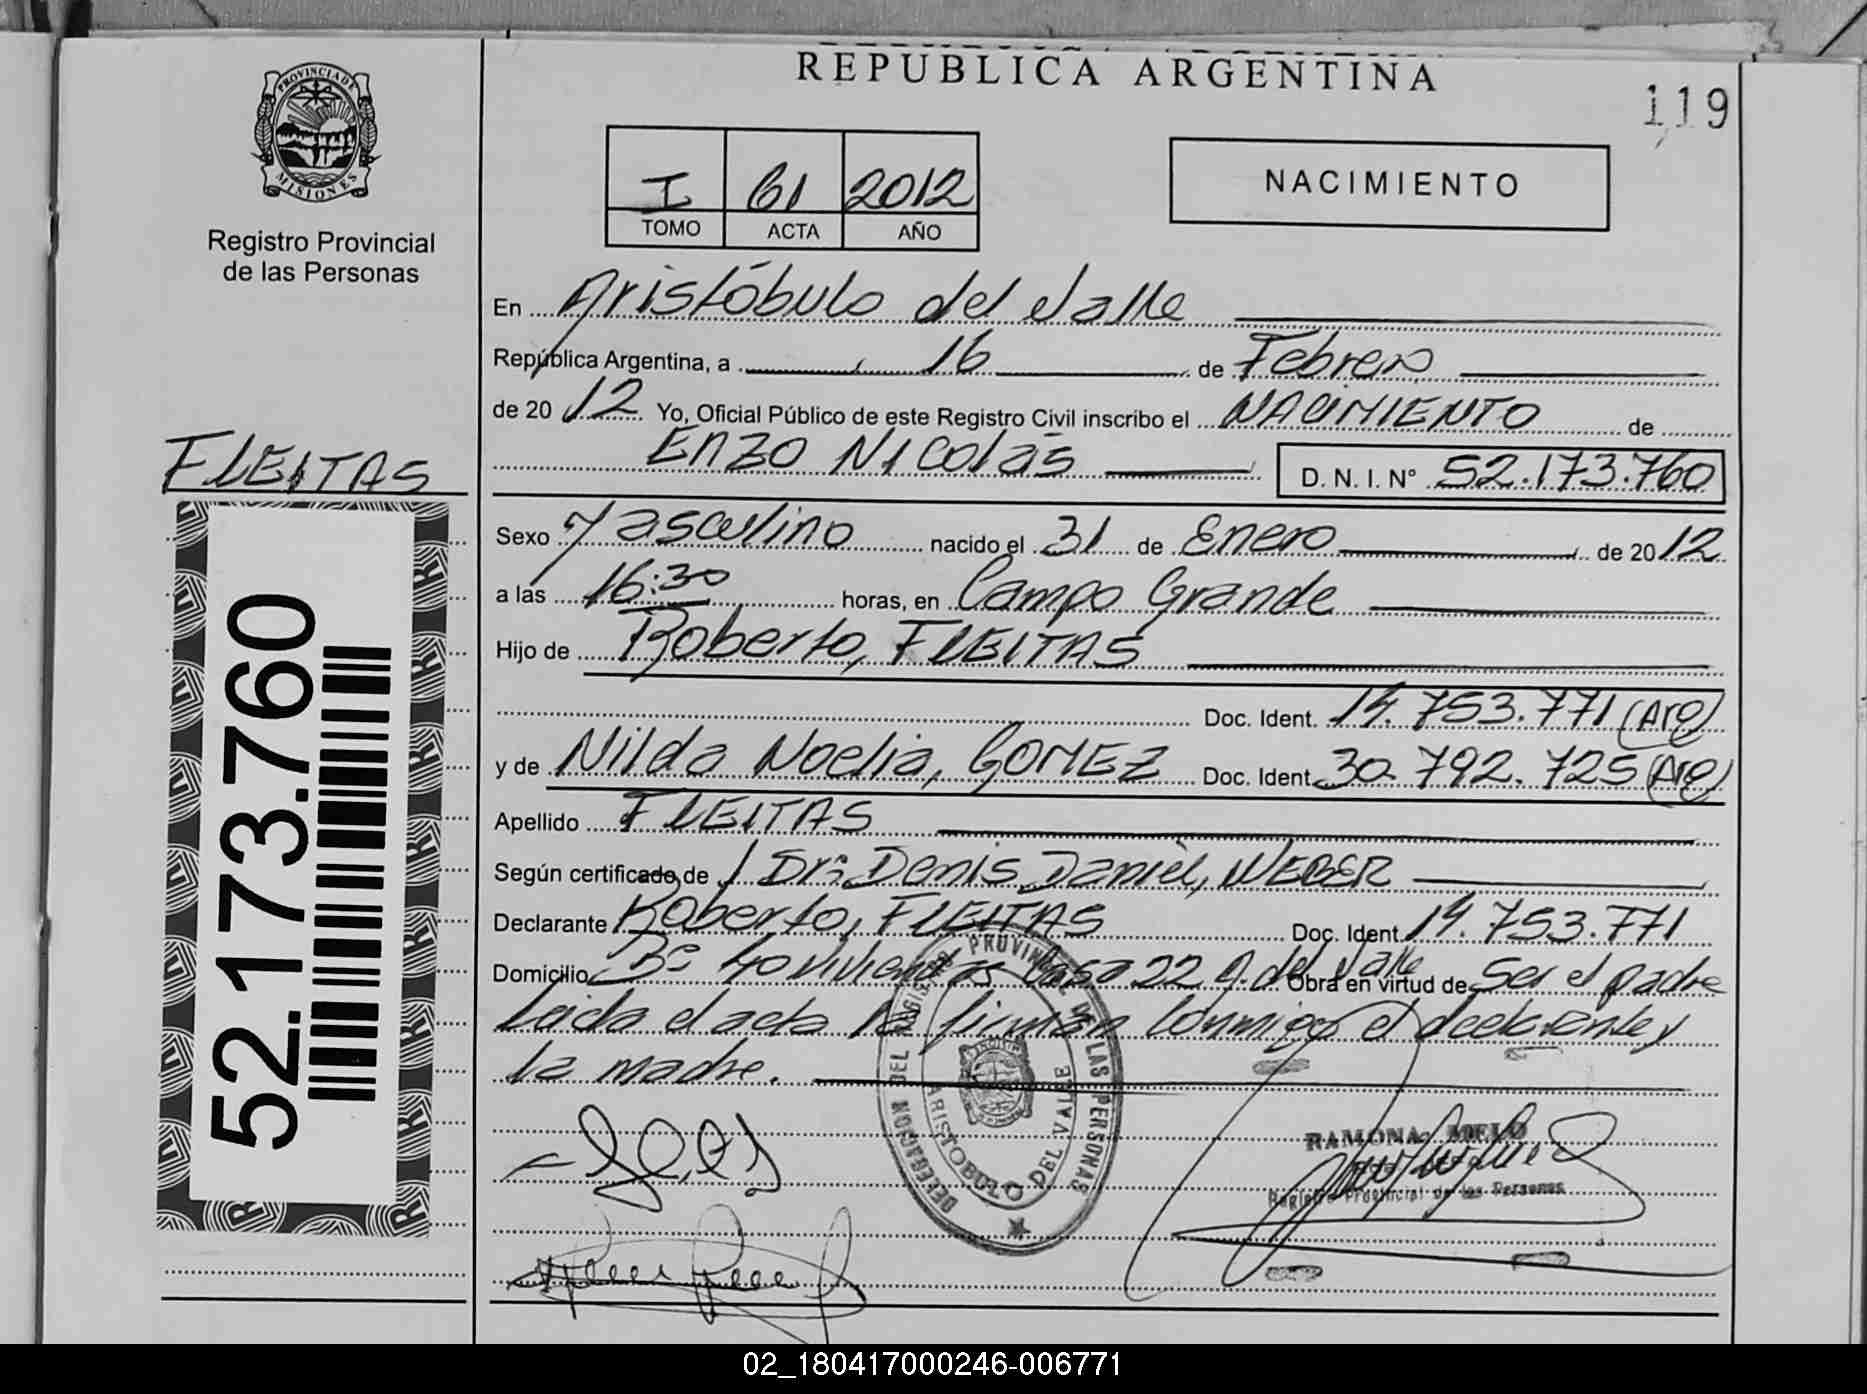 REPUBLICA ARGENTINA
119
PROVINCIA DE
MISIONES
Registro Provincial
de las Personas
I 61 2012
TOMO ACTA AÑO
NACIMIENTO
En Aristóbulo del Valle
República Argentina, a 16 de Febrero
de 2012 Yo, Oficial Público de este Registro Civil inscribo el NACIMIENTO de
ENZO NICOLÁS D. N. I. Nº 52.173.760
FLEITAS
52.173.760
Sexo Masculino nacido el 31 de Enero de 2012
a las 16:30 horas, en Campo Grande
Hijo de Roberto, FLEITAS
Doc. Ident. 14.753.771 (Arg)
y de Nilda Noelia, GOMEZ Doc. Ident. 30.792.725 (Arg)
Apellido FLEITAS
Según certificado de / Dr: Denis Daniel, WEBER
Declarante Roberto, FLEITAS Doc. Ident. 14.753.771
Domicilio Bº 40 viviendas Casa 22 A. del Valle Obra en virtud de Ser el padre
Leída el acta la firman conmigo el declarante y
la madre.
DELEGACION DEL REGISTRO PROVINCIAL DE LAS PERSONAS
ARISTOBULO DEL VALLE
RAMONA MELO
Registro Provincial de las Personas
02_180417000246-006771